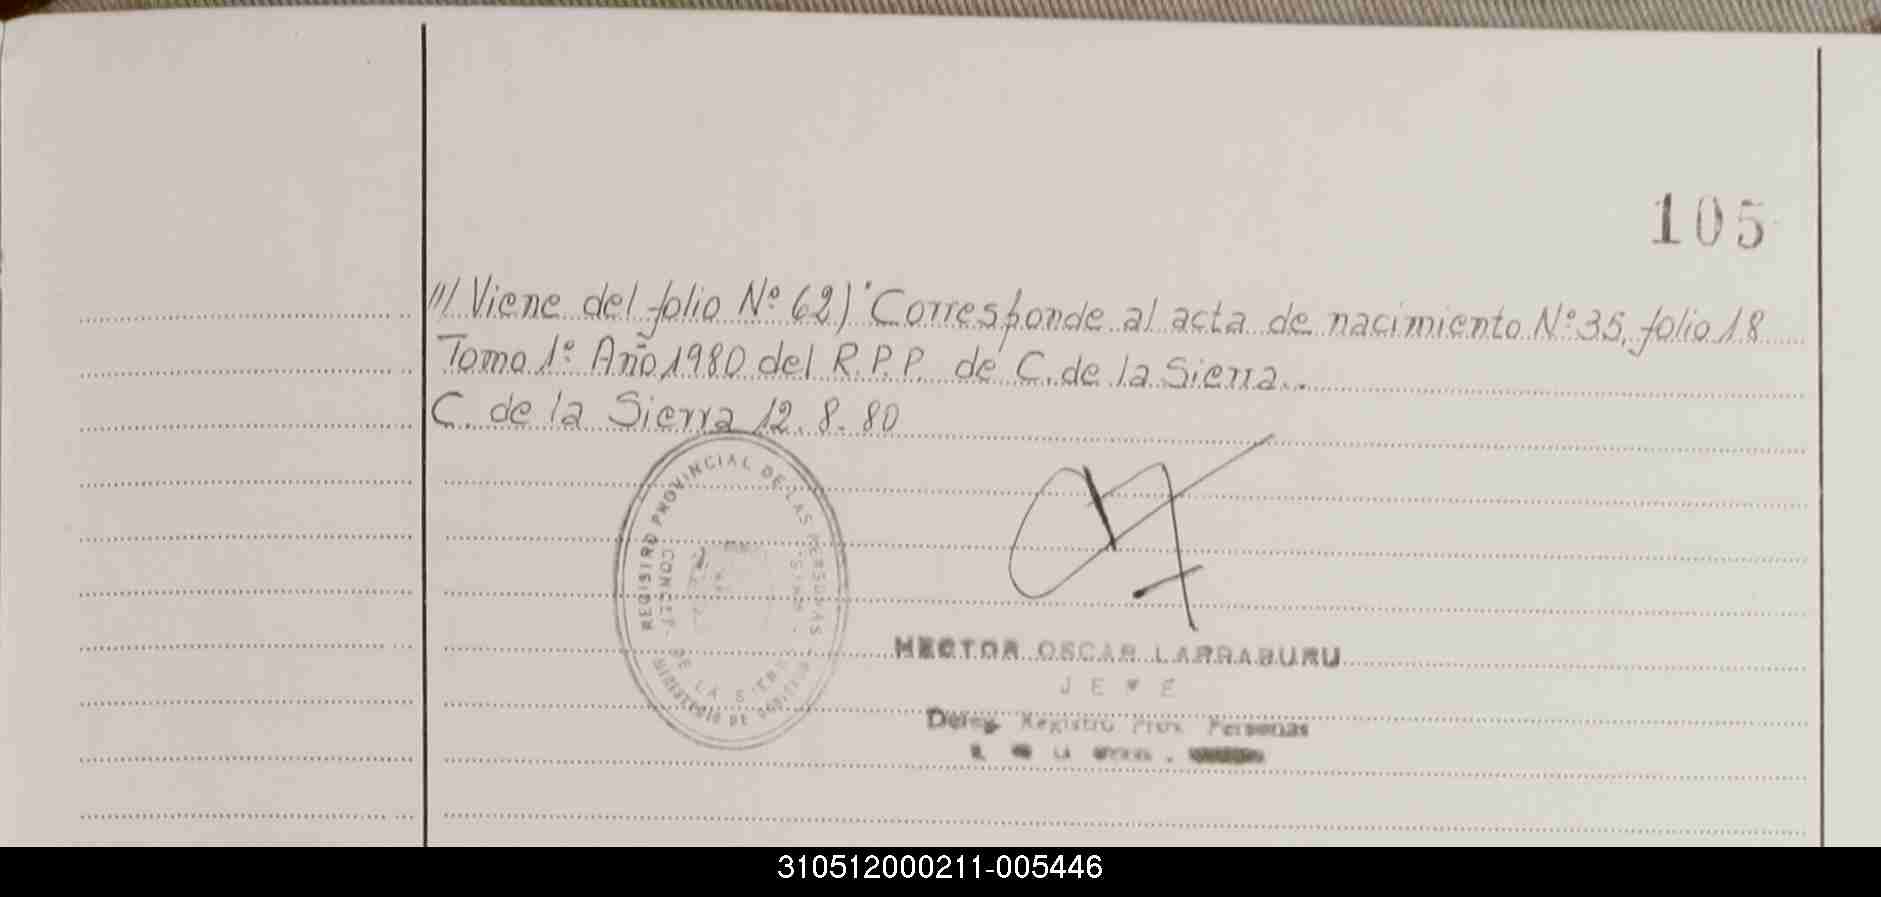 105
///Viene del folio Nº 62) Corresponde al acta de nacimiento Nº 35, folio 18
Tomo 1º Año 1980 del R.P.P. de C. de la Sierra..
C. de la Sierra 12.8.80
REGISTRO PROVINCIAL DE LAS PERSONAS
DE LA SIERRA
MINISTERIO DE
HECTOR OSCAR LARRABURU
JEFE
Deleg. Registro Prov. Personas
LA
310512000211-005446